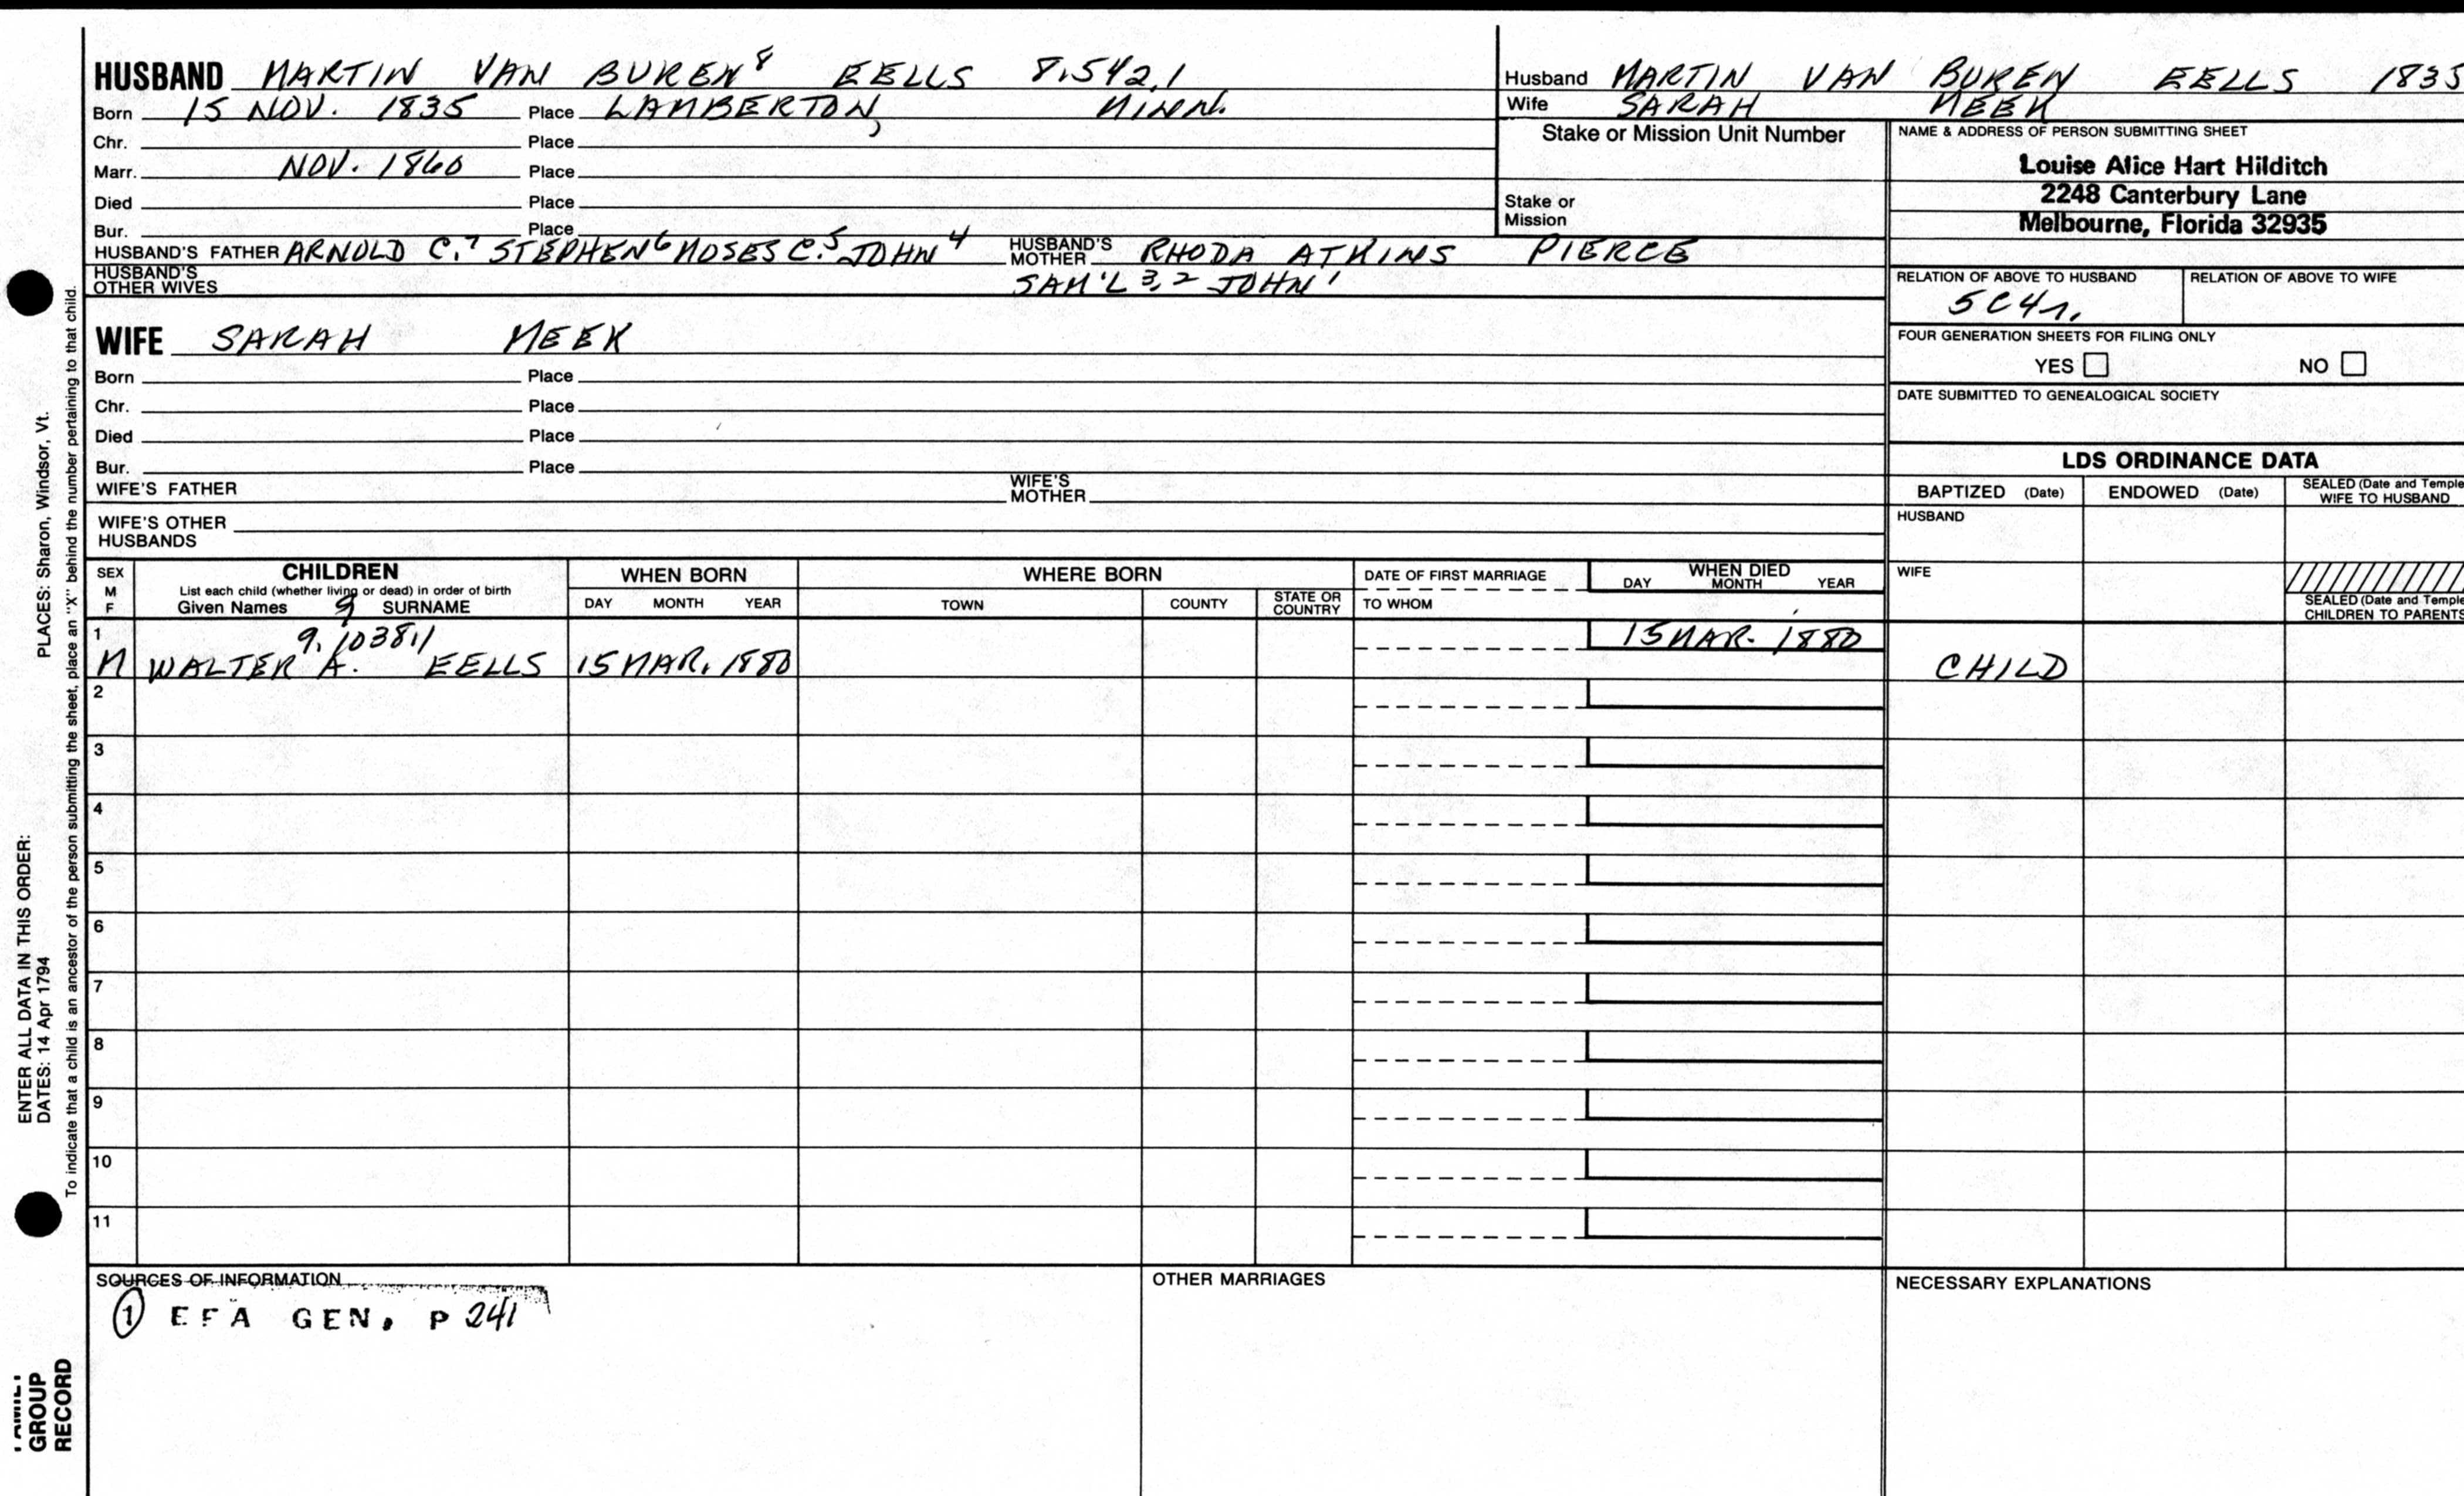 HUSBAND MARTIN VAN BUREN⁸ EELLS 8.542.1
Born 15 NOV. 1835 Place LAMBERTON, MINN.
Chr. Place
Marr. NOV. 1860 Place
Died Place
Bur. Place
HUSBAND'S FATHER ARNOLD C.⁷ STEPHEN⁶ MOSES C.⁵ JOHN⁴ HUSBAND'S MOTHER RHODA ATKINS PIERCE
HUSBAND'S OTHER WIVES SAM'L ³,² JOHN¹
WIFE SARAH MEEK
Born Place
Chr. Place
Died Place
Bur. Place
WIFE'S FATHER WIFE'S MOTHER
WIFE'S OTHER HUSBANDS
Husband MARTIN VAN BUREN EELLS 1835
Wife SARAH MEEK
Stake or Mission Unit Number
Stake or Mission
NAME & ADDRESS OF PERSON SUBMITTING SHEET
Louise Alice Hart Hilditch
2248 Canterbury Lane
Melbourne, Florida 32935
RELATION OF ABOVE TO HUSBAND RELATION OF ABOVE TO WIFE
5C4r.
FOUR GENERATION SHEETS FOR FILING ONLY
YES NO
DATE SUBMITTED TO GENEALOGICAL SOCIETY
LDS ORDINANCE DATA
BAPTIZED (Date) ENDOWED (Date) SEALED (Date and Temple
WIFE TO HUSBAND
HUSBAND
WIFE
SEALED (Date and Temple
CHILDREN TO PARENTS
SEX
M
F
CHILDREN
List each child (whether living or dead) in order of birth
Given Names 9 SURNAME
WHEN BORN
DAY MONTH YEAR
WHERE BORN
TOWN COUNTY STATE OR COUNTRY
DATE OF FIRST MARRIAGE
TO WHOM
WHEN DIED
DAY MONTH YEAR
1 9.1038.1 15 MAR. 1880
M WALTER A. EELLS 15 MAR. 1880 CHILD
2
3
4
5
6
7
8
9
10
11
SOURCES OF INFORMATION
① EFA GEN. P 241
OTHER MARRIAGES
NECESSARY EXPLANATIONS
PLACES: Sharon, Windsor, Vt.
ENTER ALL DATA IN THIS ORDER:
DATES: 14 Apr 1794
To indicate that a child is an ancestor of the person submitting the sheet, place an "X" behind the number pertaining to that child.
FAMILY
GROUP
RECORD